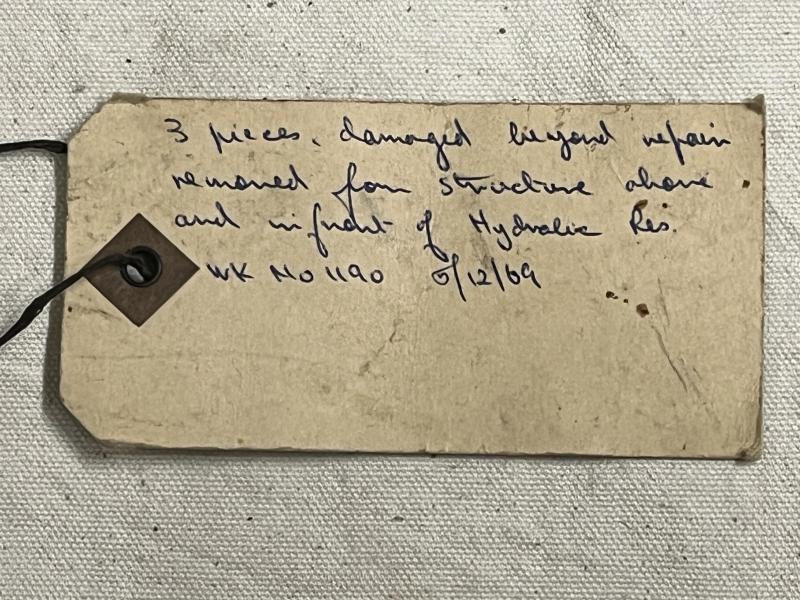 3 pieces, damaged beyond repair
removed from structure above
and infront of Hydralic Res.
WK No 1190 5/12/69